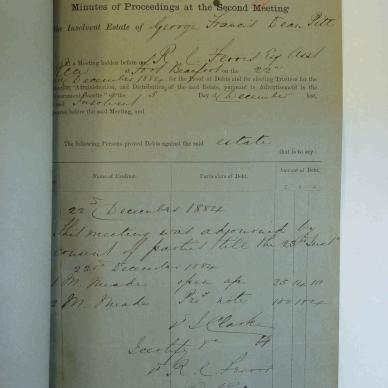 Minutes of Proceedings at the Second Meeting
the Insolvent Estate of George Francis Dean Pitt
a Meeting holden before R C
at Fort Beaufort on the 22nd
December 1884 for the Proof of Debts and for electing Trustees for the
Administration, and Distribution, of the said Estate, pursuant to Advertisement in the
Government Gazette of the 5 Day of December last,
said Insolvent
before said Meeting, and
The following Persons proved Debts against the said estate
that is to say:
Name of Creditor. Particulars of Debt. Amount of Debt.
22nd December 1884
This meeting was adjourned by
consent of parties till the 23rd Inst
22nd December 1884
1 M. Meade open a/c 25 14 10
2 M. Meade Pro. note 100 10 4
J Clarke
I certify
R C